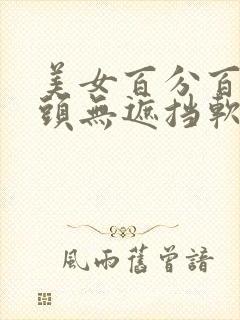 美女百分百
頭無遮挡軟
風雨舊曾諳